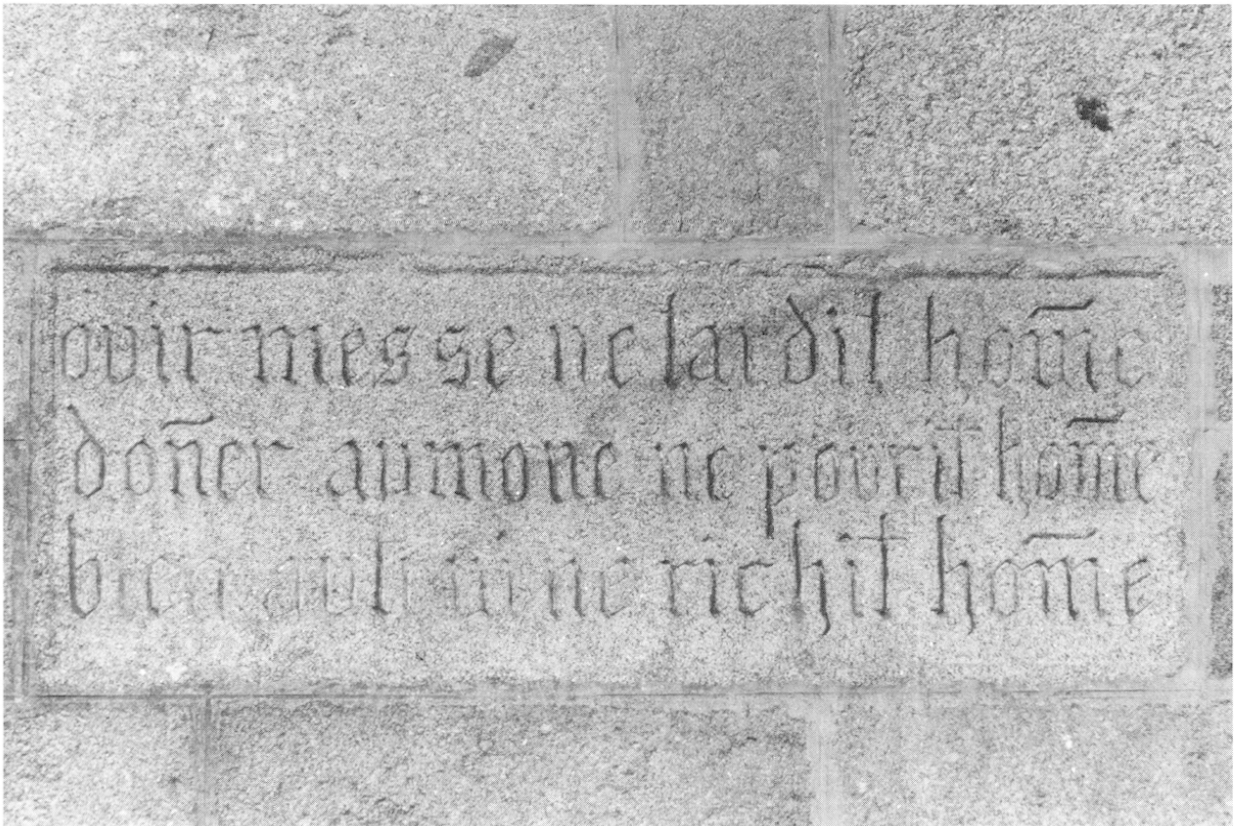 ovir messe ne tardit hom̃e
don̄er aumone ne povrit hom̃e
bien autrui ne richit hom̃e